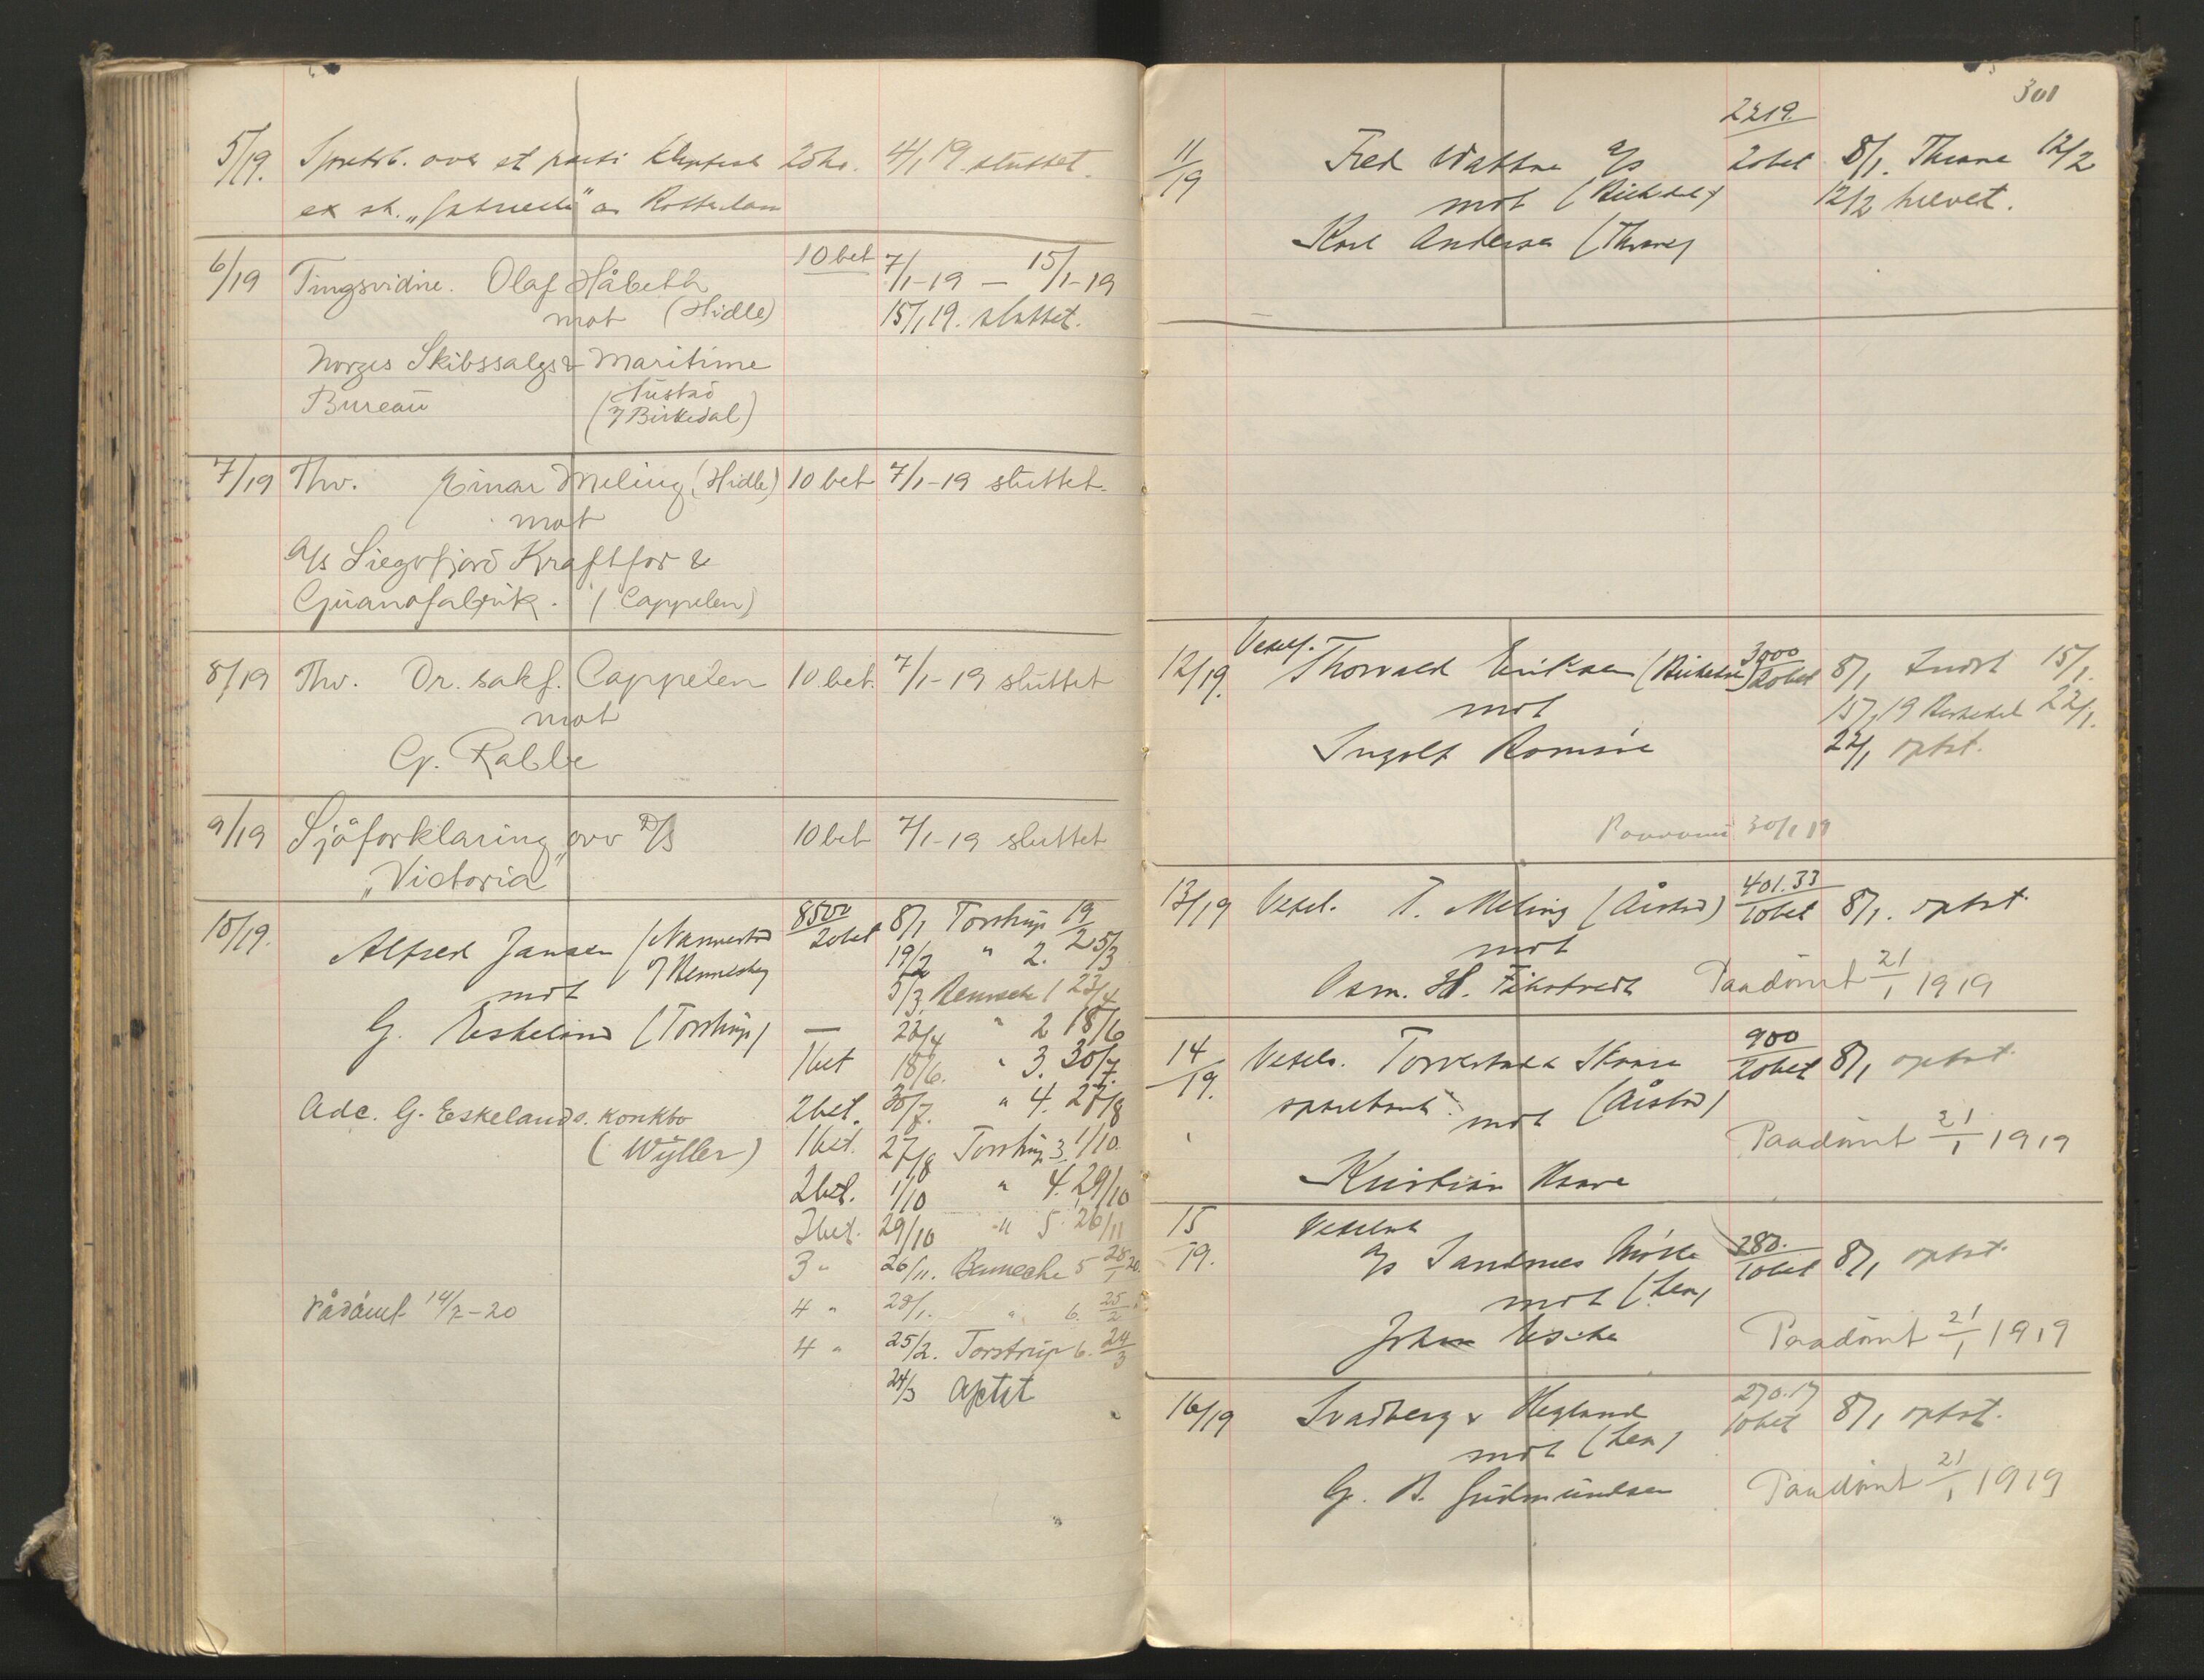 5/19. over et parti 20 kr. 4/1 19. sluttet.
ex sk. „ " av Rotterdam
6/19 Tingsvidne. Olaf Håbeth 10 bet 7/1-19 — 15/1-19
mot (Hidle) 15/1 19. sluttet.
Norges Skibssalgs & Maritime
Bureau
7/19 Thv. Einar Meling (Hidle) 10 bet 7/1-19 sluttet.
mot
A/s Kraftfor &
Guanofabrik. (Cappelen)
8/19 Thv. Or. sakf. Cappelen 10 bet. 7/1-19 sluttet
mot
G. Rabbe
9/19 Sjöforklaring ovv D/S 10 bet 7/1-19 sluttet
„Victoria"
10/19. Alfred Jansen 8500 20 bet 8/1 Torstrup 19/2
19/2 " 2. 5/3
mot 5/3. 1 23/4
G. Eskeland (Torstrup) — 23/4 " 2 18/6
1 bet 18/6. " 3. 30/7.
Adc. G. Eskelands. konkbo 2 bet. 30/7. " 4. 27/8
(Wyller) 1 bet. 27/8 Torstrup 3 1/10.
2 bet. 1/10 " 4. 29/10
3 bet. 29/10 " 5. 26/11
3 " 26/11. 5 28/1 20.
Pådömt 14/7-20 4 " 28/1. " 6. 25/2
4 " 25/2. Torstrup 6. 24/3
24/3 optat
301
2219.
11/19 Fred a/s 20 bet 8/1. Thrane 12/2
mot 12/2 hævet.
Karl Andersen (Thrane)
12/19. Veksels. Thorvald Eriksen 3000 20 bet 8/1 15/1.
mot 15/1 19 Birkedal 22/1.
Ingolf Romsöe 22/1 optat.
30/1 19
13/19 Veksel. T. Meling (Årstad) 401.33 10 bet 8/1. optat.
mot
Osm. H. Paadömt 21/1 1919
14/19. Veksels. 900 20 bet 8/1 optat.
mot (Årstad)
Paadömt 21/1 1919
Kristian
15/19. Vekselsak
a/s Sandnes Mölle 280. 10 bet 8/1 optat.
mot (Lea)
John Paadömt 21/1 1919
16/19 & Hegland 270.17 10 bet 8/1 optat.
mot (Lea)
G. B. Gudmundsen Paadömt 21/1 1919